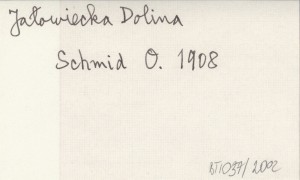 Jatowiecka Dolina
Schmid O. 1908
BT1037/2002